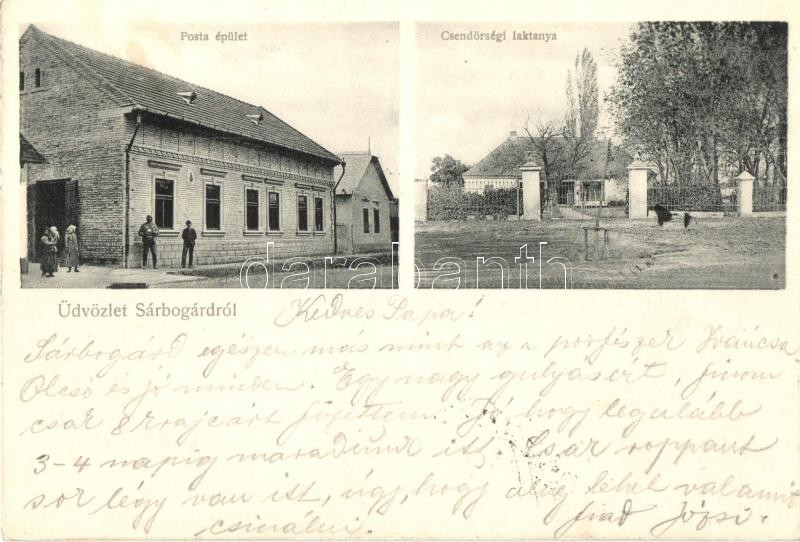 Posta épület
Csendőrségi laktanya
darabanth
Üdvözlet Sárbogárdról
Kedves Papa!
Sárbogárd egészen más mint az a porfészek Iváncsa
Olcsó és jó minden. Egy nagy gulyásért, finom
csak 8 krajcárt fizettem. Jó hogy legalább
3-4 napig maradunk itt. Csak roppant
sok légy van itt, úgy, hogy alig lehet valamit
csinálni. fiad Józsi.